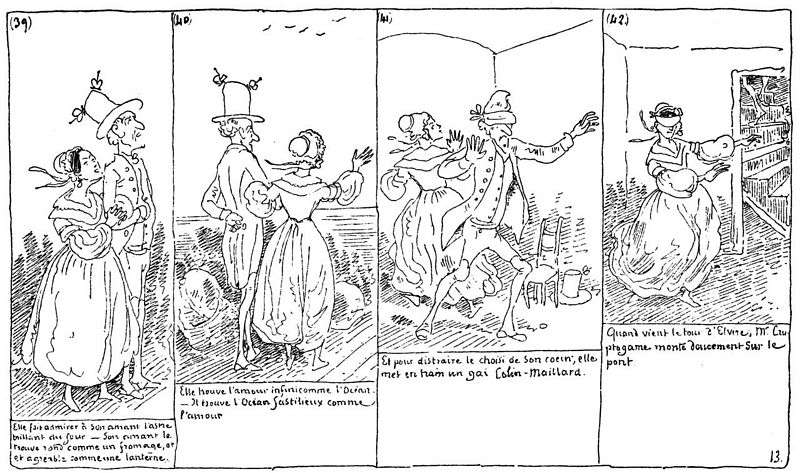 (39)
Elle fait admirer à son amant l'astre
brillant du jour — Son amant le
trouve rond comme un fromage, et
et agréable comme une lanterne.
(40)
Elle trouve l'amour infini comme l'Océan.
— Il trouve l'Océan fastidieux comme
l'amour
(41)
Et pour distraire le choisi de son coeur, elle
met en train un gai Colin-Maillard.
(42)
Quand vient le tour d'Elvire, Mr. Cry
ptogame monte doucement sur le
pont.
13.